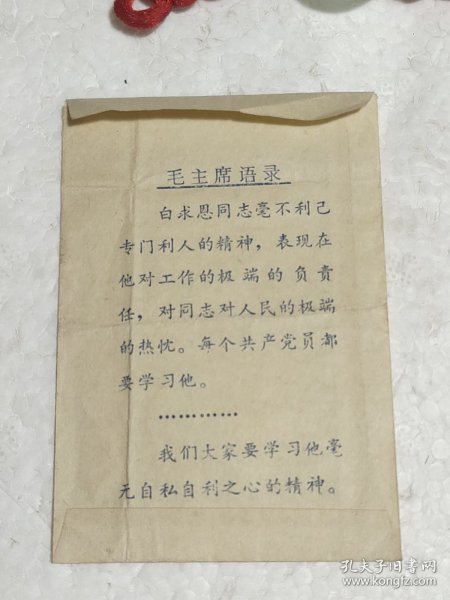 毛主席语录
白求恩同志毫不利己
专门利人的精神，表现在
他对工作的极端的负责
任，对同志对人民的极端
的热忱。每个共产党员都
要学习他。
…………
我们大家要学习他毫
无自私自利之心的精神。
孔夫子旧书网
www.kongfz.com